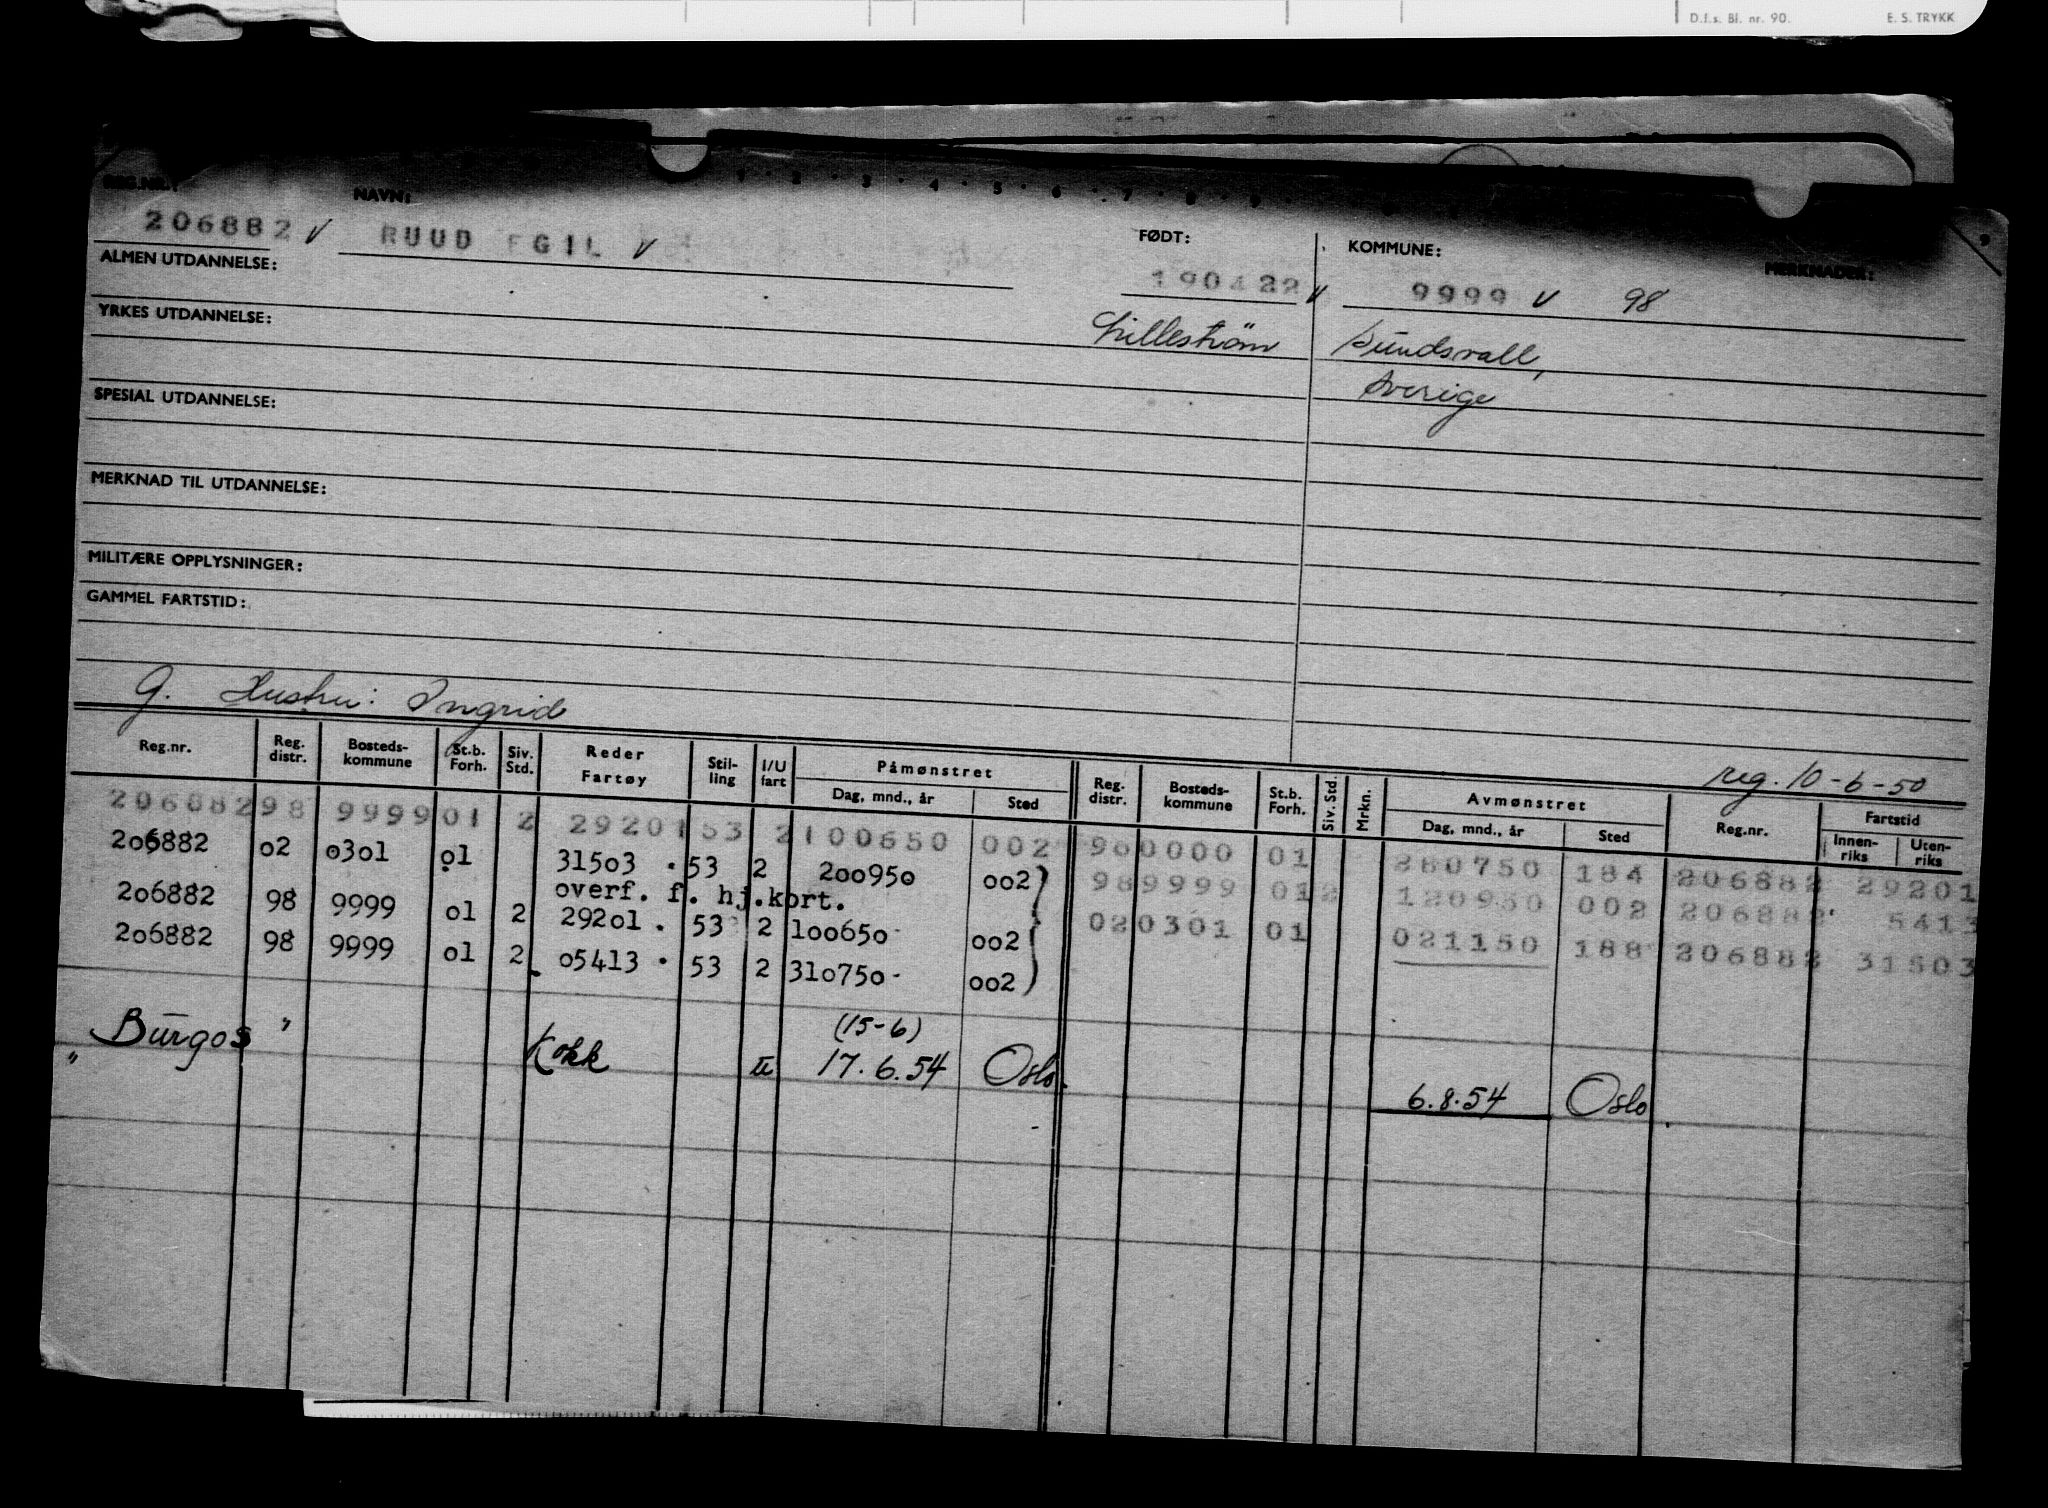 D.f.s. Bl. nr. 90. E. S. TRYKK
REG.NR.: NAVN: FØDT: KOMMUNE: MERKNADER:
206882 v RUUD EGIL v 190422 v 9999 v 98
ALMEN UTDANNELSE:
YRKES UTDANNELSE: Lillestrøm Sundsvall,
Sverige
SPESIAL UTDANNELSE:
MERKNAD TIL UTDANNELSE:
MILITÆRE OPPLYSNINGER:
GAMMEL FARTSTID:
G. Hustru: Ingrid
reg. 10-6-50
Reg.nr. Reg. distr. Bosteds- kommune St.b. Forh. Siv. Std. Reder Fartøy Stil- ling I/U fart Påmønstret Dag, mnd., år Sted Reg. distr. Bosteds- kommune St.b. Forh. Siv. Std. Mrkn. Avmønstret Dag, mnd., år Sted Reg.nr. Fartstid Innen- riks Uten- riks
206882 98 9999 01 2 29201 53 2 100650 002 960000 01 280750 184 206882 29201
206882 02 0301 01 31503 . 53 2 200950 002 989999 01 2 120950 002 206882 5413
overf. f. hj.kort.
206882 98 9999 01 2 29201 . 53 2 100650- 002 020301 01 021150 188 206882 31503
206882 98 9999 01 2 05413 . 53 2 310750- 002
Burgos " (15-6)
" Kokk u 17.6.54 Oslo. 6.8.54 Oslo